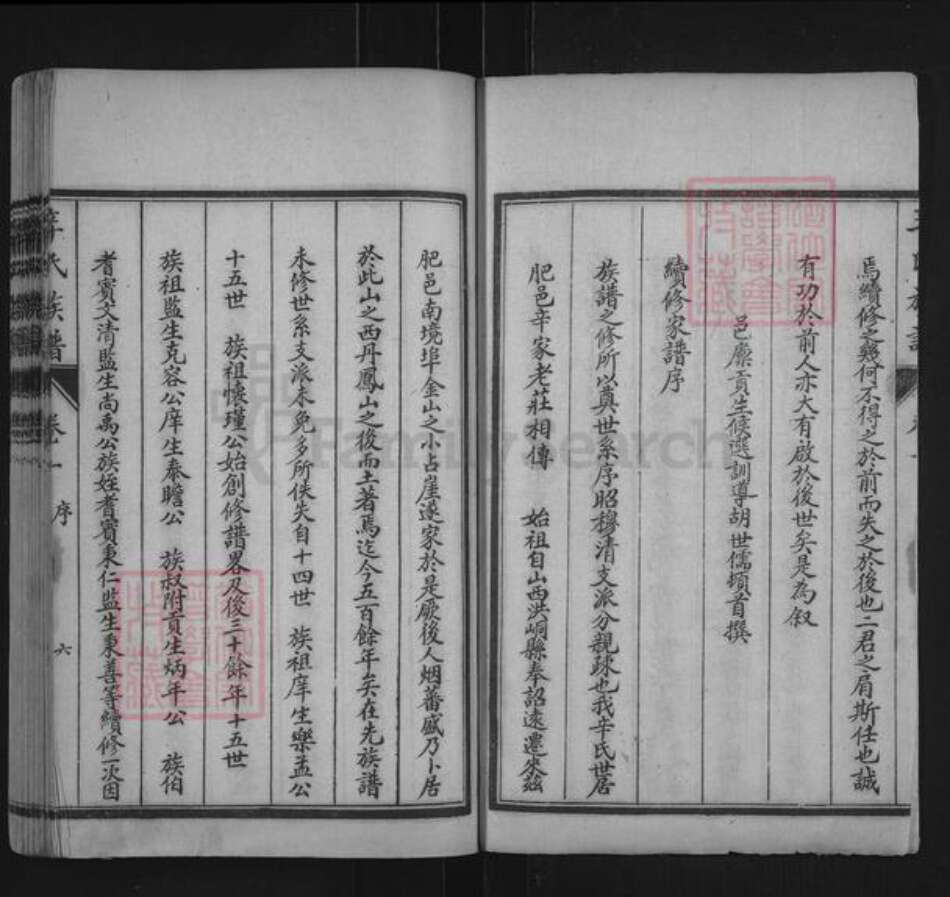 焉續修之幾何不得之於前而失之於後也二君之肩斯任也誠
有功於前人亦大有啟於後世矣是為叙
邑廩貢生候選訓導胡世儒頓首撰
續修家譜序
族譜之修所以奠世系序昭穆清支派分親疎也我辛氏世居
肥邑辛家老莊相傳　始祖自山西洪峒縣奉詔遠遷來茲
肥邑南境埠金山之小占崖遂家於是厥後人烟蕃盛乃卜居
於此山之西丹鳳山之後而土著焉迄今五百餘年矣在先族譜
未修世系支派未免多所佚失自十四世　族祖庠生樂孟公
十五世　族祖懷瑾公始創修譜畧及後三十餘年十五世
族祖監生克容公庠生奉瞻公　族叔附貢生炳年公　族伯
耆賓文清監生尚禹公族姪耆賓秉仁監生秉善等續修一次因
辛氏族譜
卷一　序
六
FamilySearch